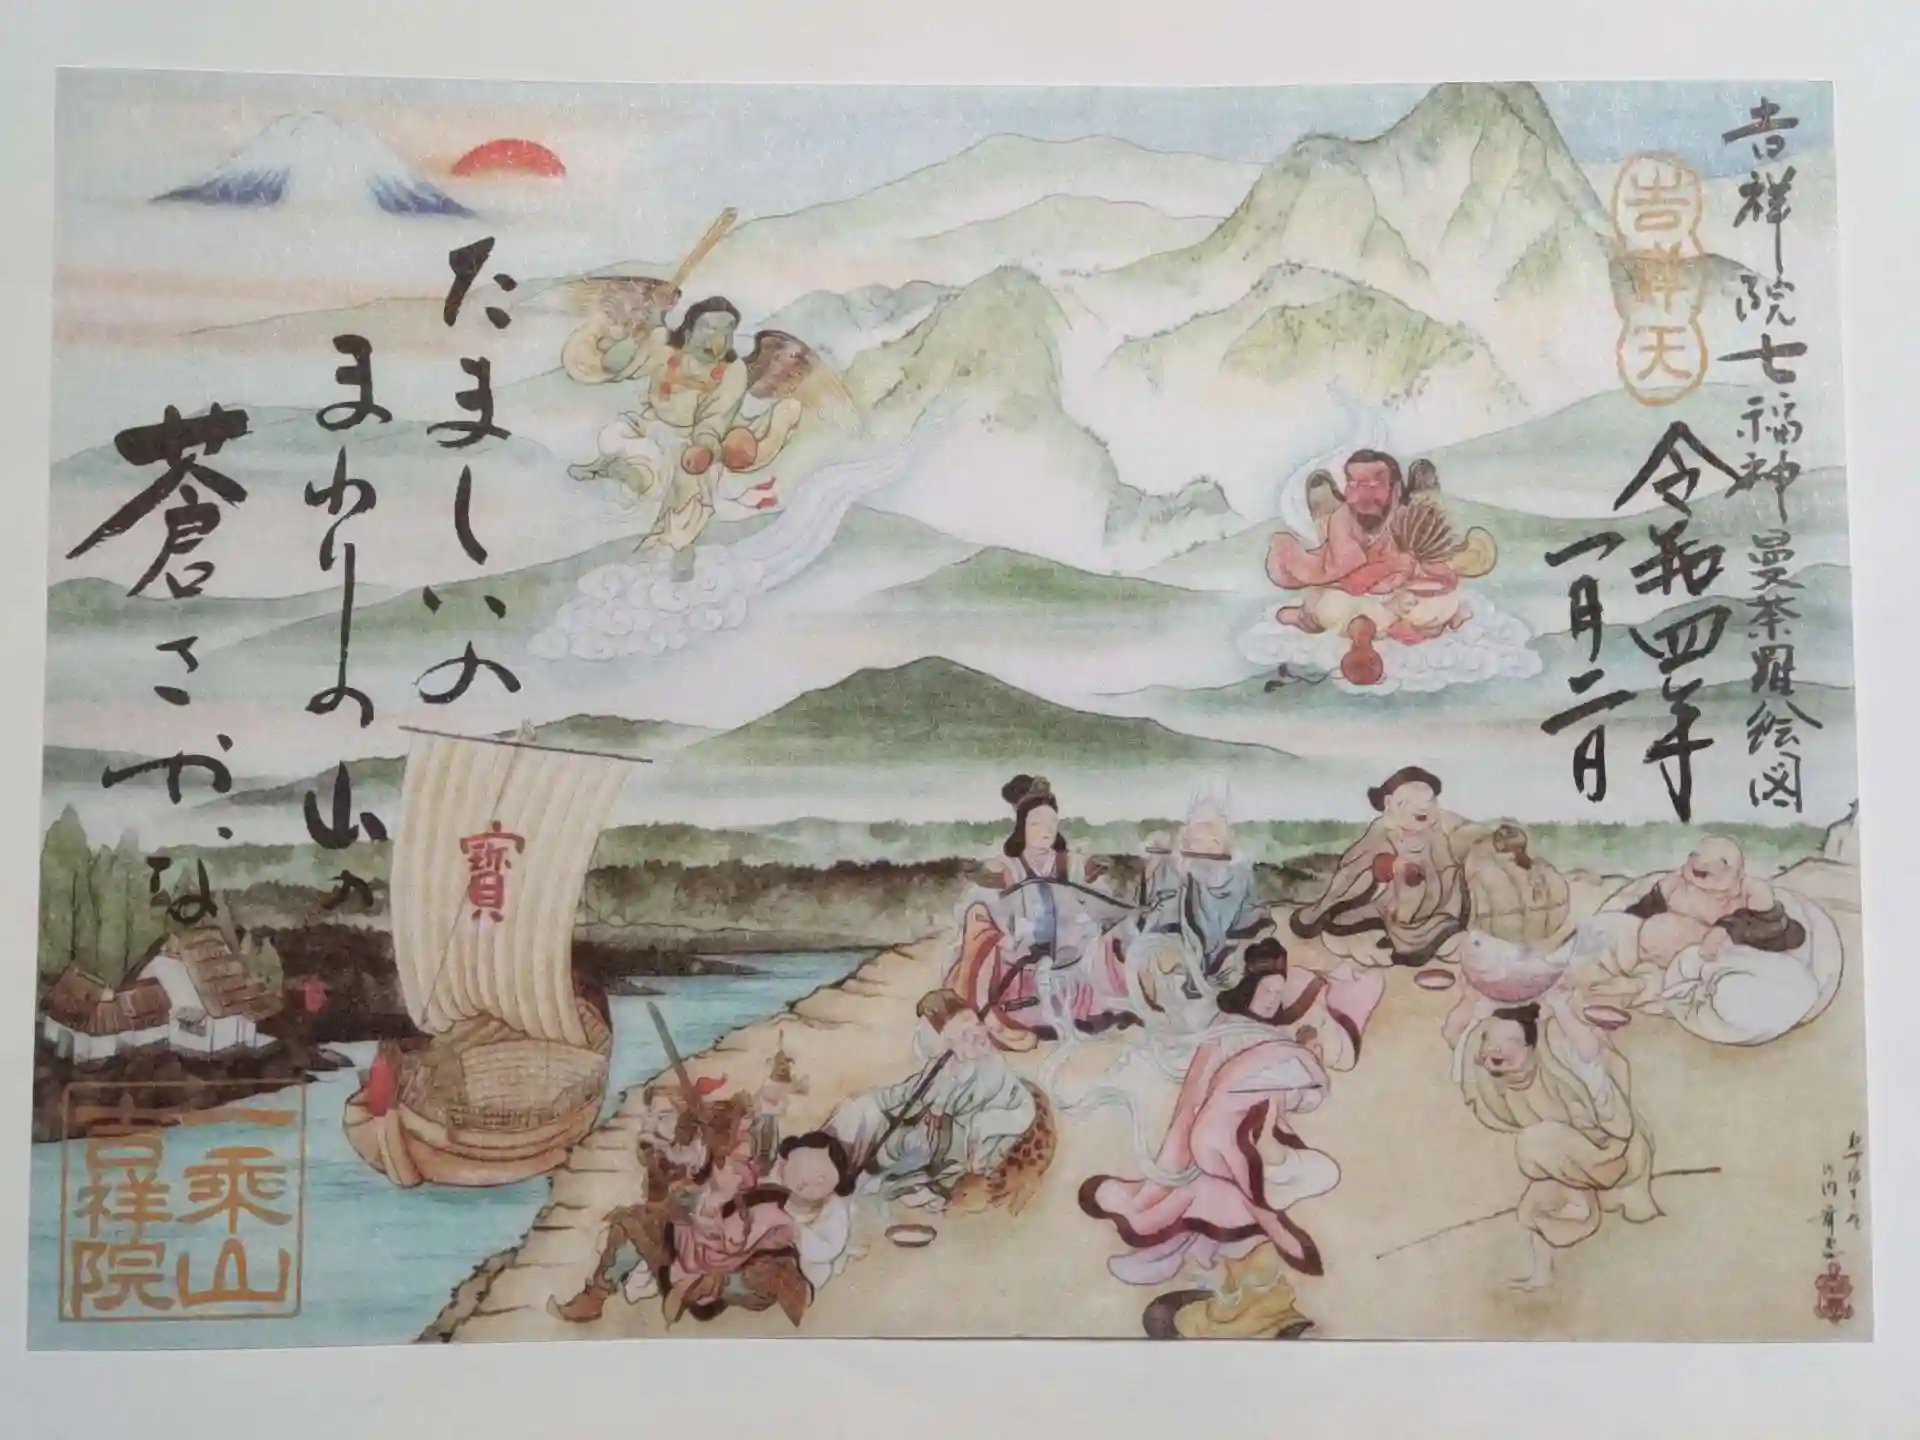 吉祥院七福神曼荼羅絵図
吉祥天
令和四年
一月二日
たましいの
まわりの山の
蒼さかな
寶
一乗山
吉祥院